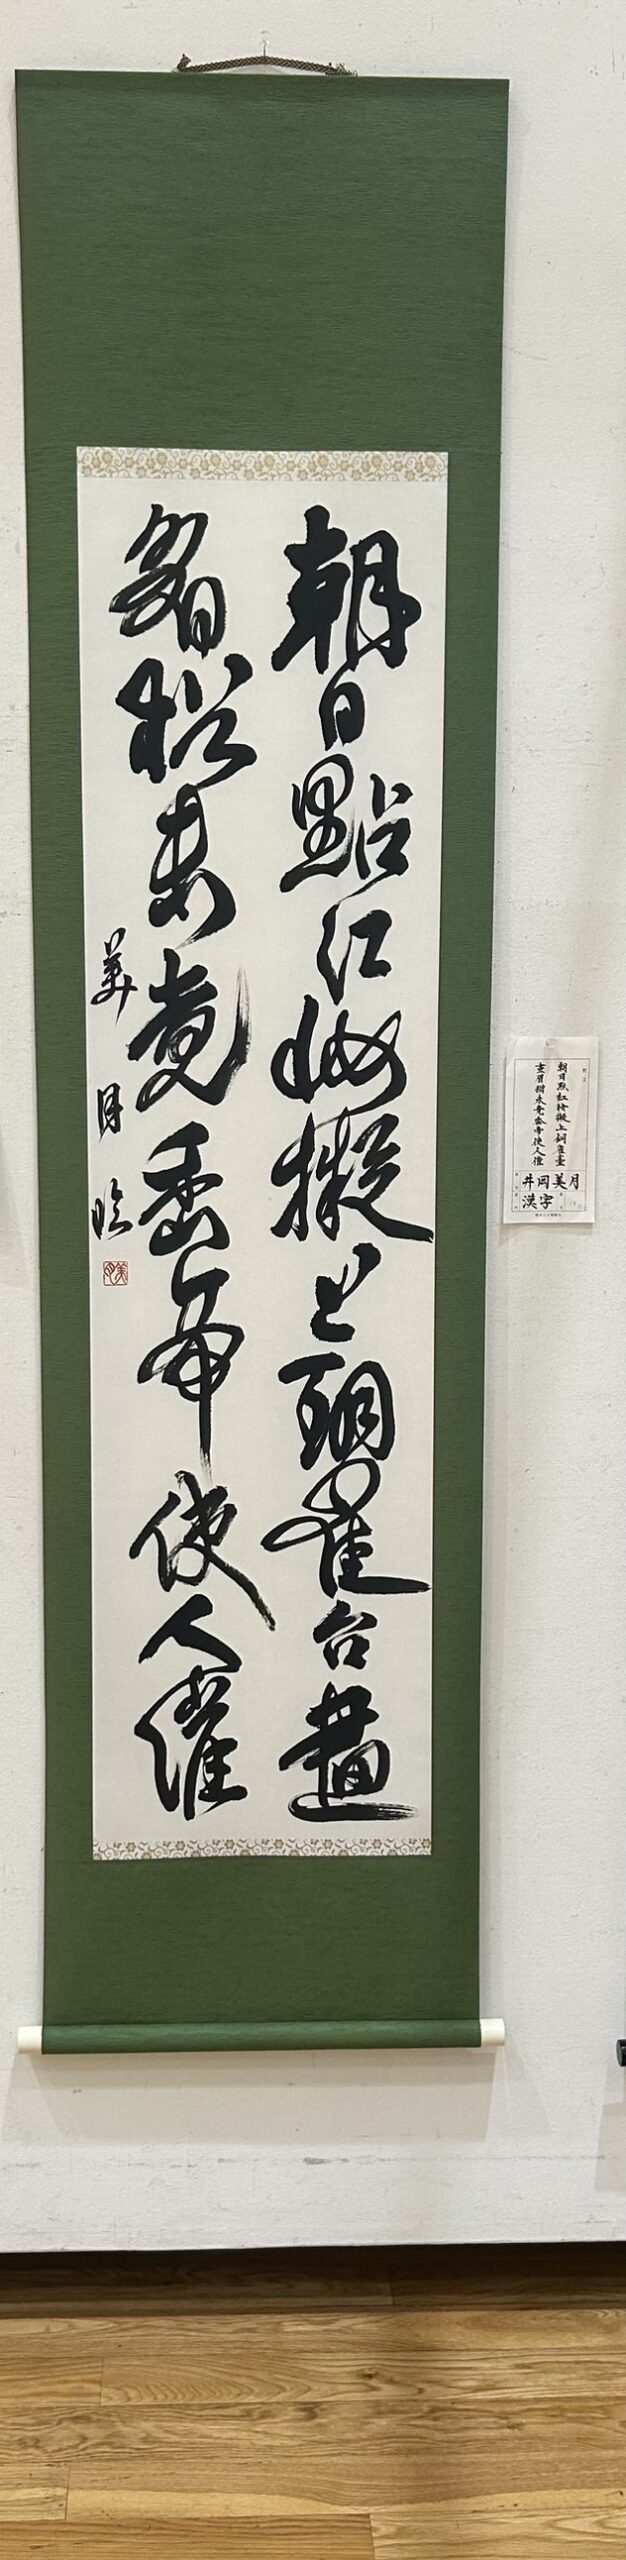 朝日點紅妝擬上銅雀台畫
眉猶未竟魏帝使人催
美月臨
釈文
朝日点紅粧擬上銅雀臺
畫眉猶未竟魏帝使人催
井岡美月
漢字